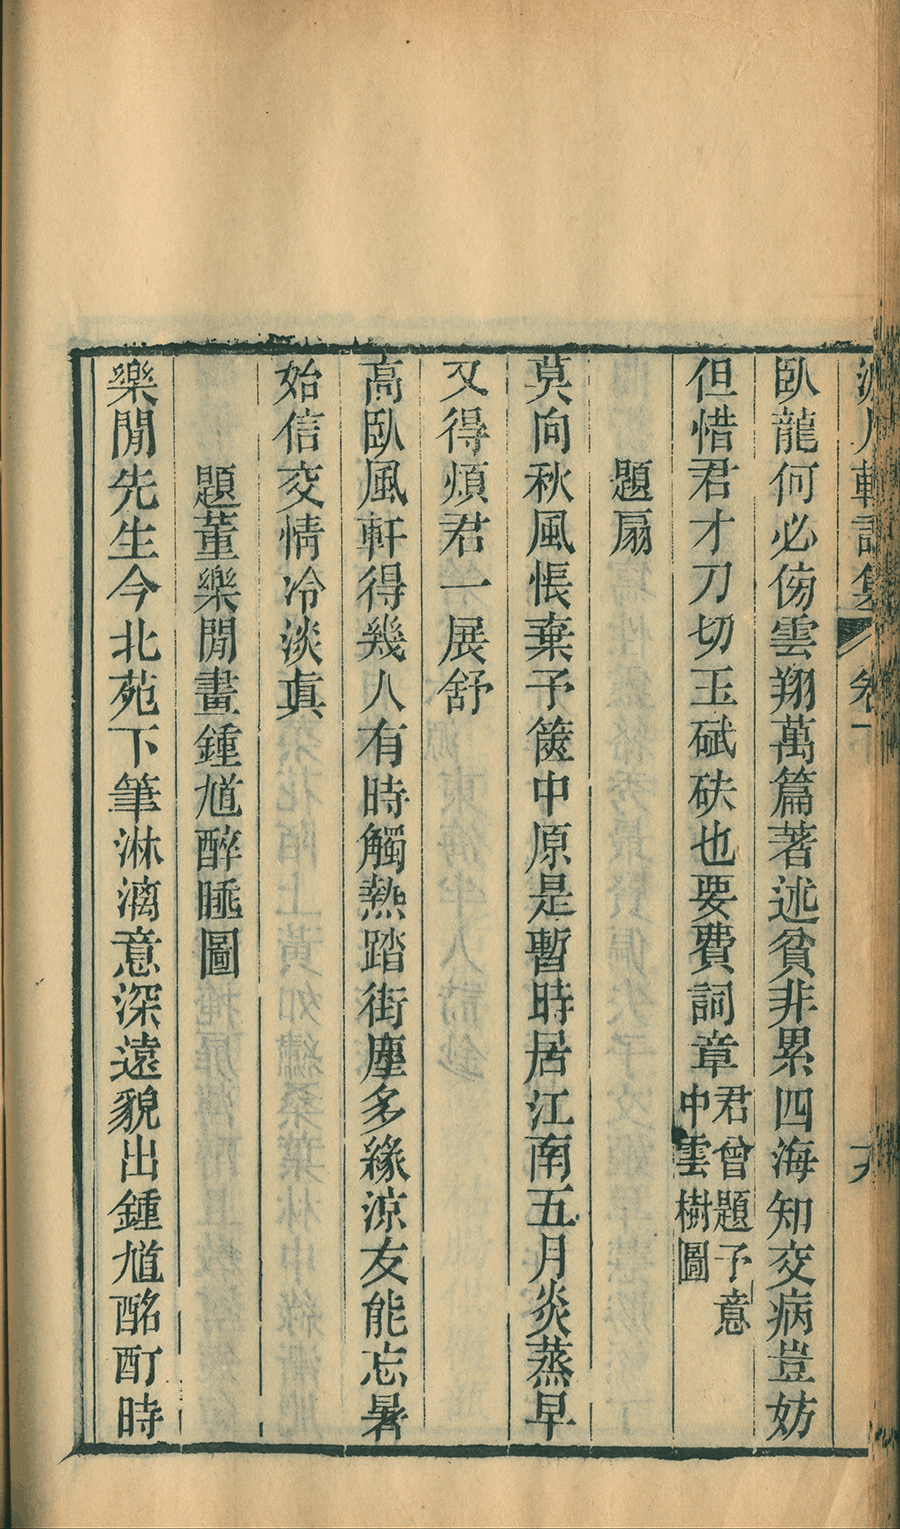 軒詩集 卷下
臥龍何必傍雲翔萬篇著述貧非累四海知交病豈妨
但惜君才刀切玉碔砆也要費詞章君曾題予意中雲樹圖
題扇
莫向秋風悵棄予篋中原是暫時居江南五月炎蒸早
又得煩君一展舒
高臥風軒得幾人有時觸熱踏街塵多緣涼友能忘暑
始信交情冷淡真
題董樂閒畫鍾馗醉睡圖
樂閒先生今北苑下筆淋漓意深遠貌出鍾馗酩酊時